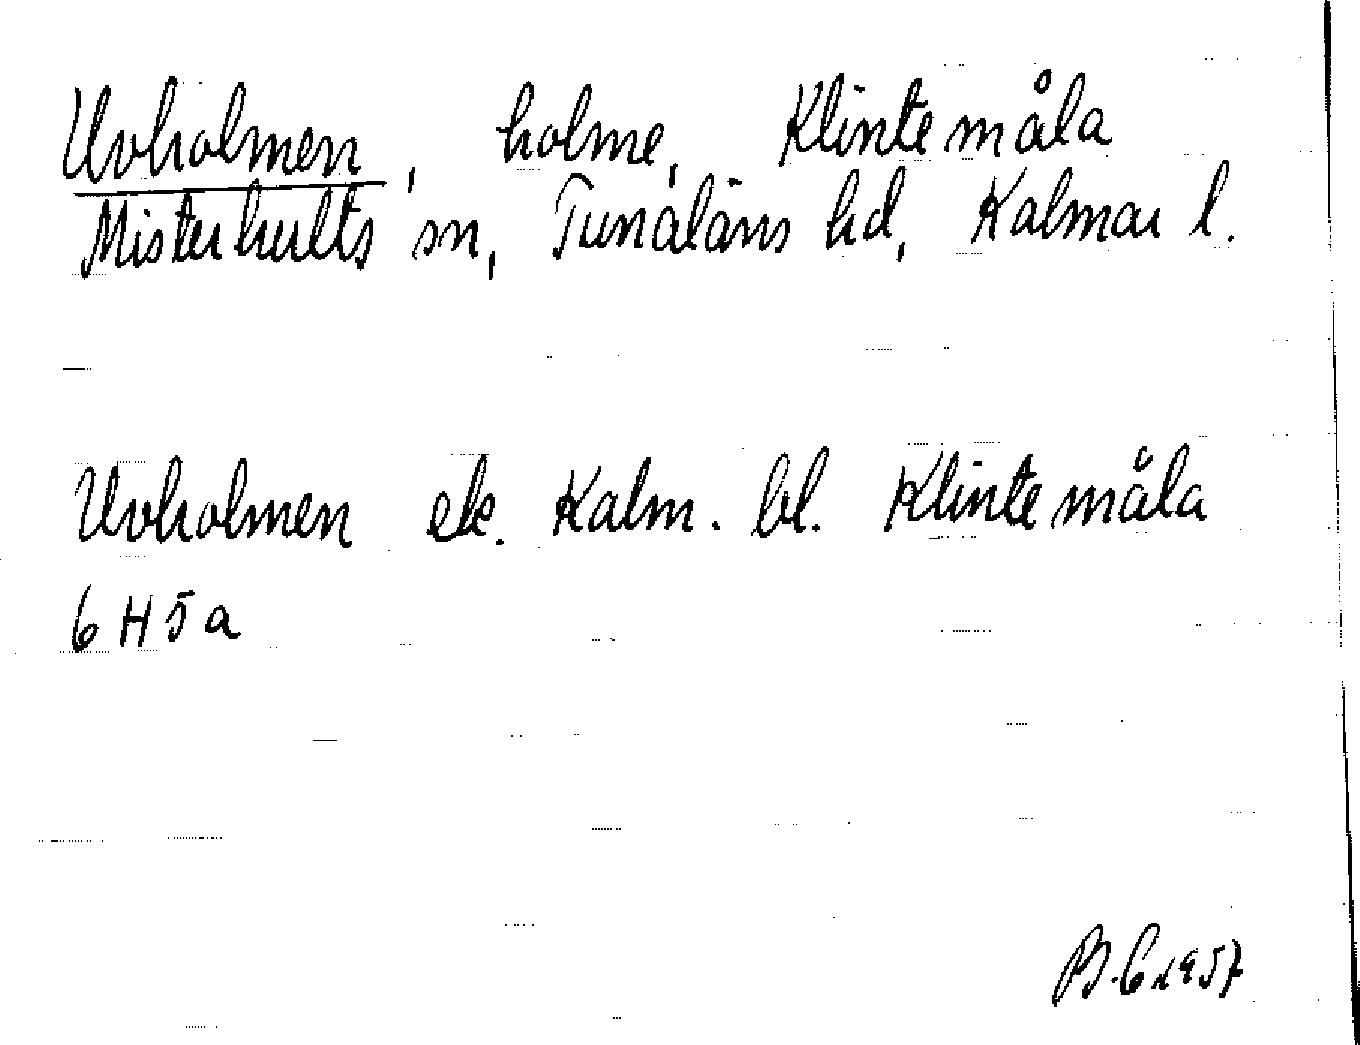 Uvholmen, holme, Klintemåla
Misterhults sn, Tunaläns hd, Kalmar l.
Uvholmen ek. Kalm. bl. Klintemåla
6 H 5 a
B.C 1957